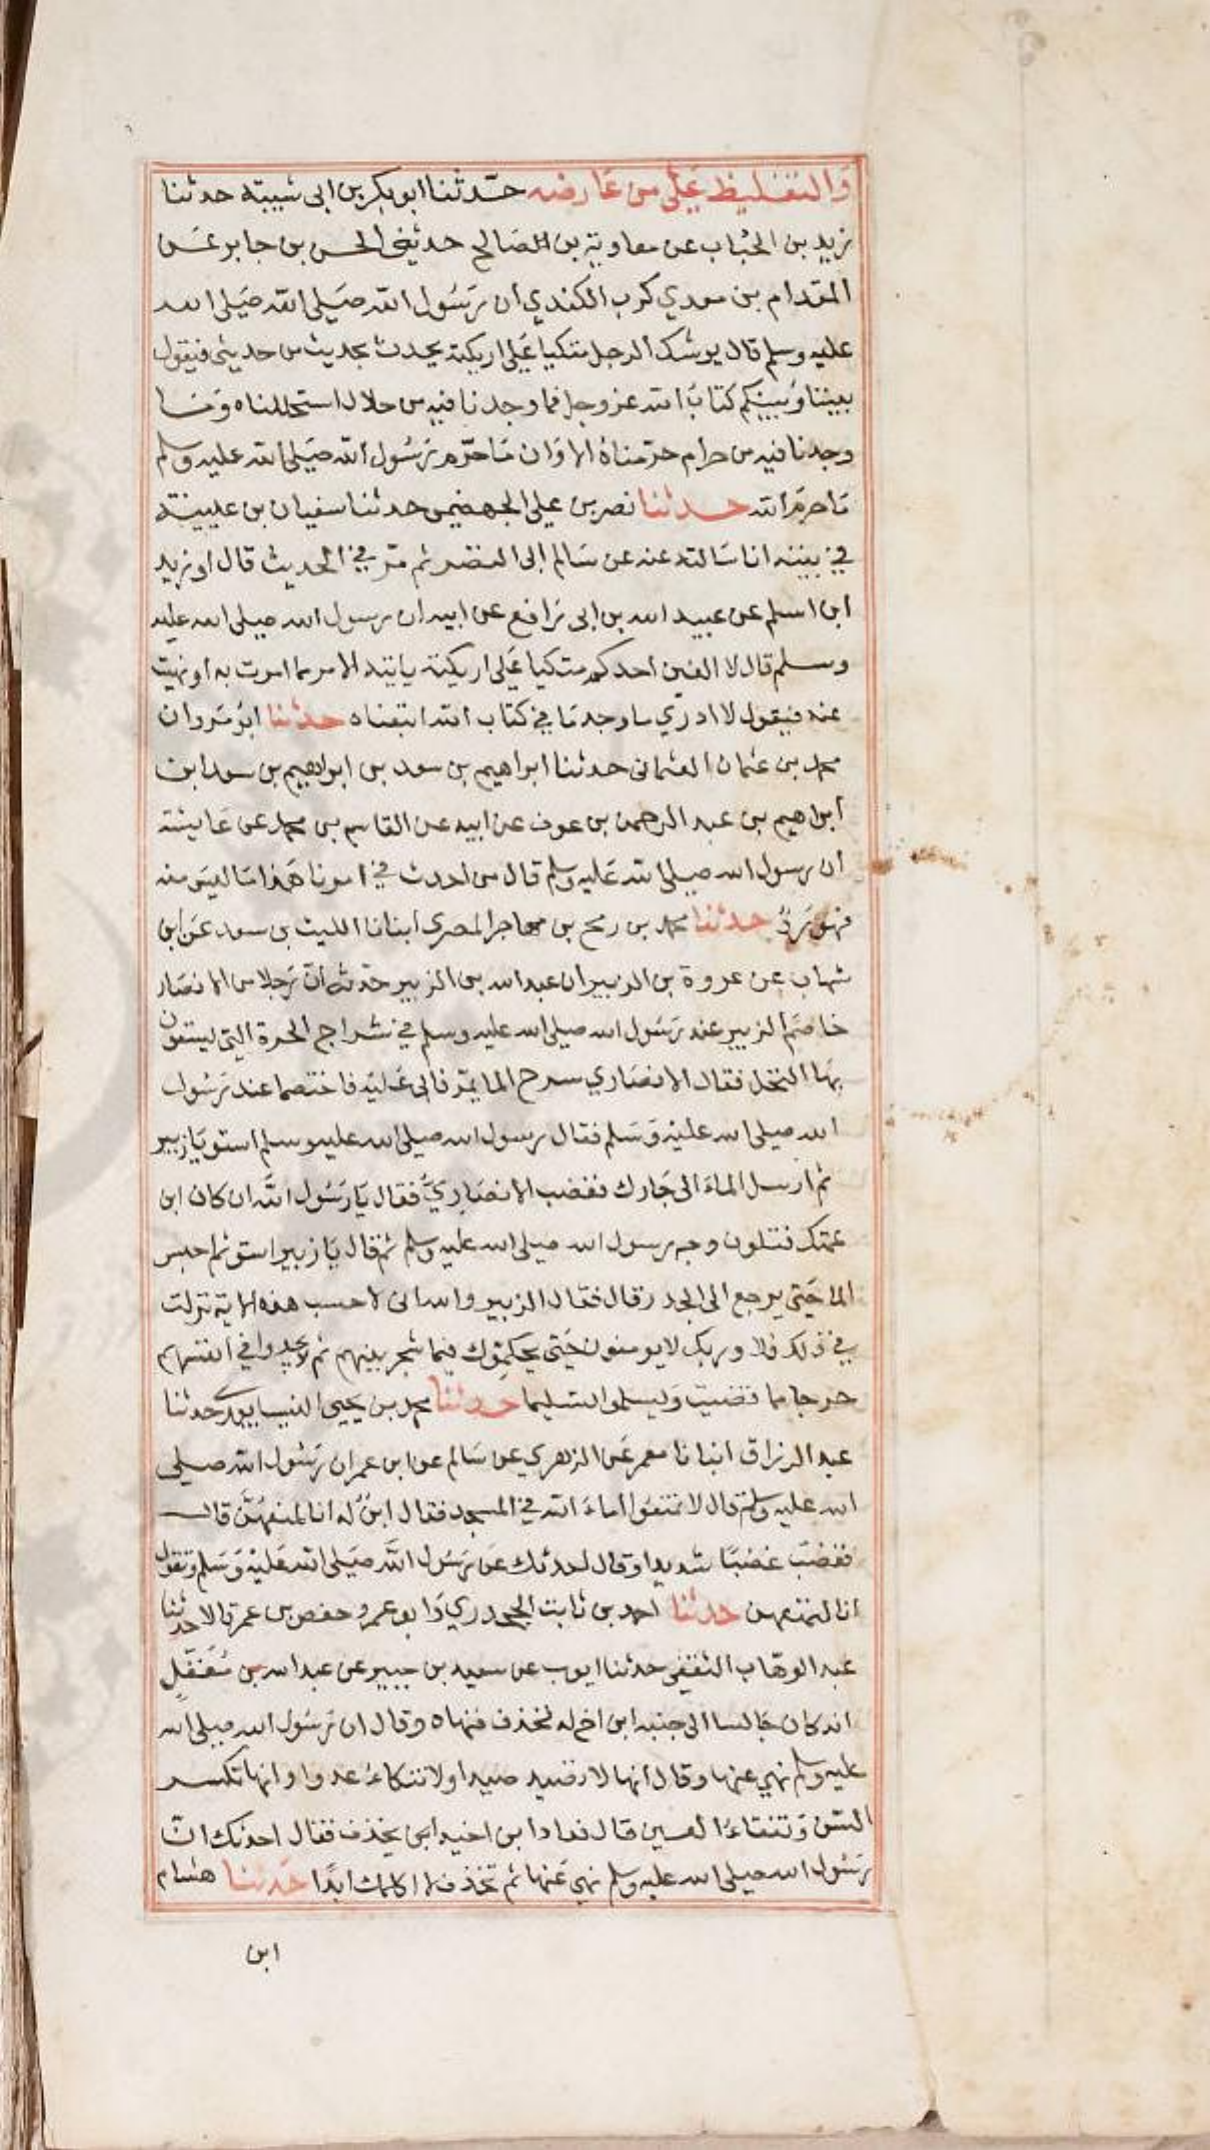 والتغليظ على من عارضه حدثنا ابو بكر بن ابى شيبة حدثنا
زيد بن الحباب عن معاوية بن الصالح حدثني الحسن بن جابر عن
المقدام بن معدي كرب الكندي ان رسول الله صلى الله صلى الله
عليه وسلم قال يوشك الرجل متكيا على اريكته يحدث بحديث من حديثى فيقول
بيننا وبينكم كتاب الله عز وجل فما وجدنا فيه من حلال استحللناه وما
وجدنا فيه من حرام حرمناه الا وان ما حرم رسول الله صلى الله عليه وسلم
ما حرم الله حدثنا نصر بن على الجهضمى حدثنا سفيان بن عيينة
في بيته انا سالته عنه عن سالم ابى النضر ثم مر في الحديث قال او زيد
ابن اسلم عن عبيد الله بن ابى رافع عن ابيه ان رسول الله صلى الله عليه
وسلم قال لا الفين احدكم متكيا على اريكته ياتيه الامر مما امرت به او نهيت
عنه فيقول لا ادري ما وجدنا في كتاب الله اتبعناه حدثنا ابو مروان
محمد بن عثمان العثمانى حدثنا ابراهيم بن سعد بن ابراهيم بن سعد ابن
ابراهيم بن عبد الرحمن بن عوف عن ابيه عن القاسم بن محمد عن عايشة
ان رسول الله صلى الله عليه وسلم قال من احدث في امرنا هذا ما ليس منه
فهو رد حدثنا محمد بن رمح بن مهاجر المصرى انبانا الليث بن سعد عن ابن
شهاب عن عروة بن الزبير ان عبد الله بن الزبير حدثه ان رجلا من الانصار
خاصم الزبير عند رسول الله صلى الله عليه وسلم في شراج الحرة التى يسقون
بها النخل فقال الانصاري سرح الما يمر فابى عليه فاختصما عند رسول
الله صلى الله عليه وسلم فقال رسول الله صلى الله عليه وسلم اسق يا زبير
ثم ارسل الماء الى جارك فغضب الانصاري فقال يا رسول الله ان كان ابن
عمتك فتلون وجه رسول الله صلى الله عليه وسلم ثم قال يا زبير اسق ثم احبس
الما حتى يرجع الى الجدر قال فقال الزبير والله انى لاحسب هذه الاية نزلت
في ذلك فلا وربك لا يومنون حتى يحكموك فيما شجر بينهم ثم لا يجدوا في انفسهم
حرجا مما قضيت ويسلموا تسليما حدثنا محمد بن يحيى النيسابورى حدثنا
عبد الرزاق انبانا معمر عن الزهري عن سالم عن ابن عمر ان رسول الله صلى
الله عليه وسلم قال لا تمنعوا اماء الله في المسجد فقال ابن له انا لنمنعهن قال
فغضب غضبا شديدا وقال احدثك عن رسول الله صلى الله عليه وسلم وتقول
انا لنمنعهن حدثنا احمد بن ثابت الجحدري وابو عمرو حفص بن عمر قالا حدثنا
عبد الوهاب الثقفى حدثنا ايوب عن سعيد بن جبير عن عبد الله بن مغفل
انه كان جالسا الى جنبه ابن اخ له فخذف فنهاه وقال ان رسول الله صلى الله
عليه وسلم نهى عنها وقال انها لا تصيد صيدا ولا تنكاء عدوا وانها تكسر
السن وتفقاء العين قال فعاد ابن اخيه ابى يخذف فقال احدثك ان
رسول الله صلى الله عليه وسلم نهى عنها ثم تخذف لا اكلمك ابدا حدثنا هشام
ابن